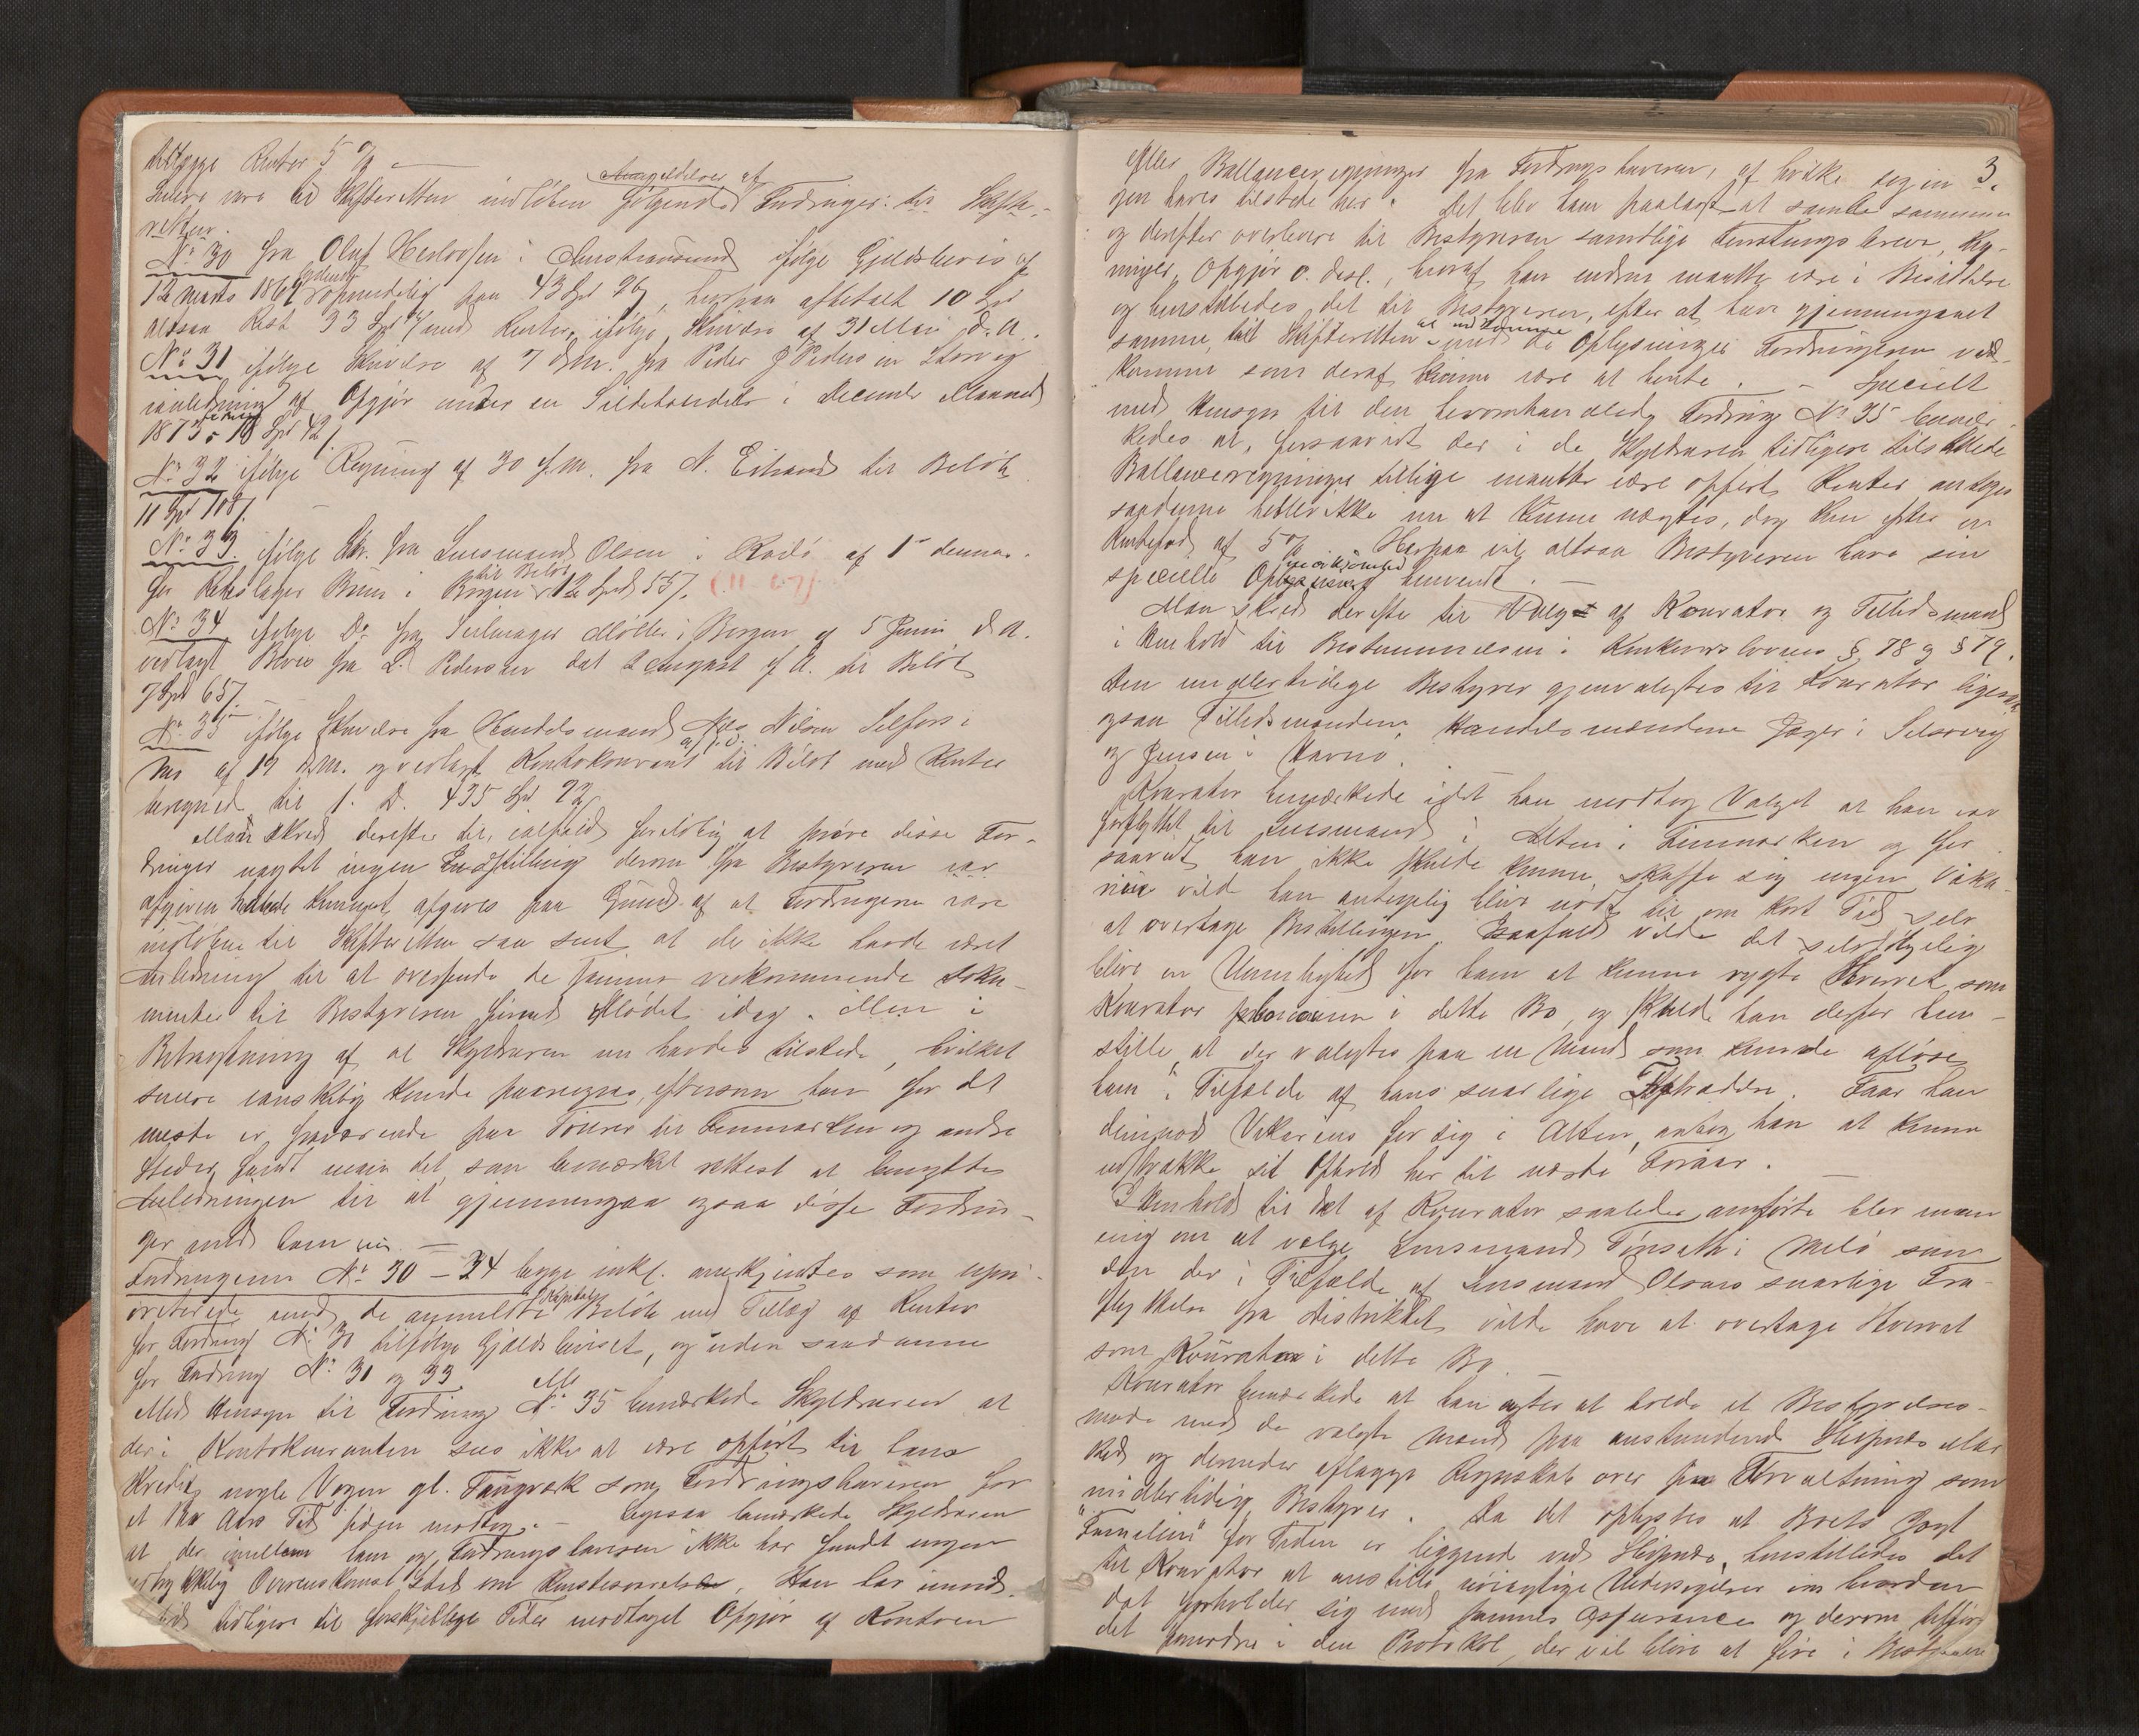 tillægge Renter 5 %
Anmeldelser af
Senere vare til Skifteretten indløbne følgende Fordringer: til Skifte-
retten.
No 30 fra Olaf Herlovsen i Christiansund ifølge Gjeldsbevis af
12 Marts 1869 lydende oprindelig paa 43 Spd , herpaa afbetalt 10 Spd
altsaa Rest 33 Spd med Renter, ifølge Skrivelse af 31 Mai d. A.
No 31 ifølge Skrivelse af 7 d. M. fra Peder P Pedersen Storvog
ianledning af Opgjør under en Sildehandel i December Maaned
1873 10 Spd 42 ſ.
No 32 ifølge Regning af 30 f. M. fra N. til Beløb
11 Spd 108 ſ.
No 33. ifølge Skr. fra Lensmand Olsen i Rødø af 1 dennes.
for Rebslager i Bergen til Beløb 12 Spd 55 ſ.
No 34 ifølge Do fra Seilmager Møller i Bergen af 5 Juni d. A.
vedlagt Bevis fra L. Pedersen dat 2 August f. A. til Beløb
7 Spd 65 ſ.
No 35 ifølge Skrivelse fra Handelsmand Nils Nilsen Selfors i
Mo af 19 d. M. og vedlagt Kontokurant til Beløb med Renter
beregned til 1. D. 435 Spd 22 ſ.
Man skred derefter til, ialfald foreløbig at prøve disse For-
dringer uagtet ingen Indstilling derom fra Bestyreren var
afgiven heller kunnet afgives paa Grund af at Fordringerne vare
indløbne til Skifteretten saa sent at der ikke havde været
Anledning til at oversende de samme vedkommende Doku-
menter til Bestyreren forud Mødet idag. Men i
Betragtning af at Skyldneren nu havdes tilstede, hvilket
senere vanskelig kunde paaregnes, eftersom han for det
meste er fraværende paa Tourer til Finmarken og andre
Steder, fandt man det, som bemærket rettest at benytte
Anledningen til at gjennemgaa ogsaa disse Fordrin-
ger med ham nu. —
Fordringerne No 30 – 34 begge inkl. anerkjendtes som upri-
oriterede med de anmeldte Kapital Beløb med Tillæg af Renter
for Fordring No 30 tilfølge Gjeldsbeviset, og uden saadanne
for Fordring No 31 og 33
Med Hensyn til Fordring No 35 bemærkede Skyldneren at
der i Kontokuranten sees ikke at være opført til hans
Kredit, nogle Voger gl. Taugværk som Fordringshaveren for
et Par Aars Tid siden modtog. — Ligesaa bemærkede Skyldneren
at der imellem ham og Fordringshaveren ikke har fundt nogen
udtrykkelig Overenskomst Sted om Rentesvarelse. Han har imid-
lertid tidligere til forskjellige Tider modtaget Opgjør af Kontoen
3.
eller Ballanceregninger fra Fordringshaveren, af hvilke ingen
haves tilstede her. Det blev ham paalagt at samle sammen
og derefter overlevere til Bestyreren samtlige Breve, Reg-
ninger, Opgjør o. desl., hvoraf han endnu maatte være i Besiddelse
og henstilledes det til Bestyreren, efter at have gjennemgaaet
samme, til Skifteretten at indkomme med de Oplysninger Fordringerne ved-
kommer som deraf kunne være at hente. — Specielt
med Hensyn til den her omhandlede Fordring No 35 bemær-
kedes at, forsaavidt der i de Skyldneren tidligere tilstillede
Ballanceregninger tillige maatte være opført Renter antages
saadanne heller ikke nu at kunne nægtes, dog kun efter en
Rentefod af 5 % Herpaa vil altsaa Bestyreren have sin
specielle Opmærksomhed henvendt. —
Man skred derefter til Valg af Kurator og Tillidsmænd
i Henhold til Bestemmelsen i Konkurslovens § 78 og § 79.
Den midlertidige Bestyrer gjenvalgtes til Kurator ligesaa
ogsaa Tillidsmændene, Handelsmændene Jæger i Selsøvig
og Jensen i Havnø.
Kurator bemærkede idet han modtog Valget at han var
forflyttet til Lensmand i Alten i Finmarken og for-
saavidt han ikke skulde kunne skaffe sig nogen Vika-
rius vilde han antagelig blive nødt til om kort Tid selv
at overtage Bestillingen. Isaafald vilde det selvfølgelig
blive en Umulighed for ham at kunne røgte Hvervet som
Kurator i dette Bo, og skulde han derfor hen-
stille, at der valgtes paa en Mand som kunde afløse
ham i Tilfælde af hans snarlige Fratræden. Faar han
derimod Vikarius for sig i Alten, antog han at kunne
udstrække sit Ophold her til næste Foraar. —
I Henhold til det af Kurator saaledes anførte blev man
enig om at vælge Lensmand i Melø som
den der i Tilfælde af Lensmand Olsens snarlige Fra-
flyttelse fra Distriktet vilde have at overtage Hvervet
som Kurator i dette Bo.
Kurator bemærkede at han agter at holde et Bestyrelses-
møde med de valgte Mænd paa anstundende Marked
og derunder aflægge Regnskab over sin Forvaltning som
midlertidig Bestyrer. Da det oplystes at Boets Jagt
"Familien" for Tiden er liggende ved , henstilledes det
til Kurator at anstille nøiagtige Undersøgelser om hvordan
det forholder sig med sammes Assurance og derom tilføre
det fornødne i den Protokol, der vil blive at føre i